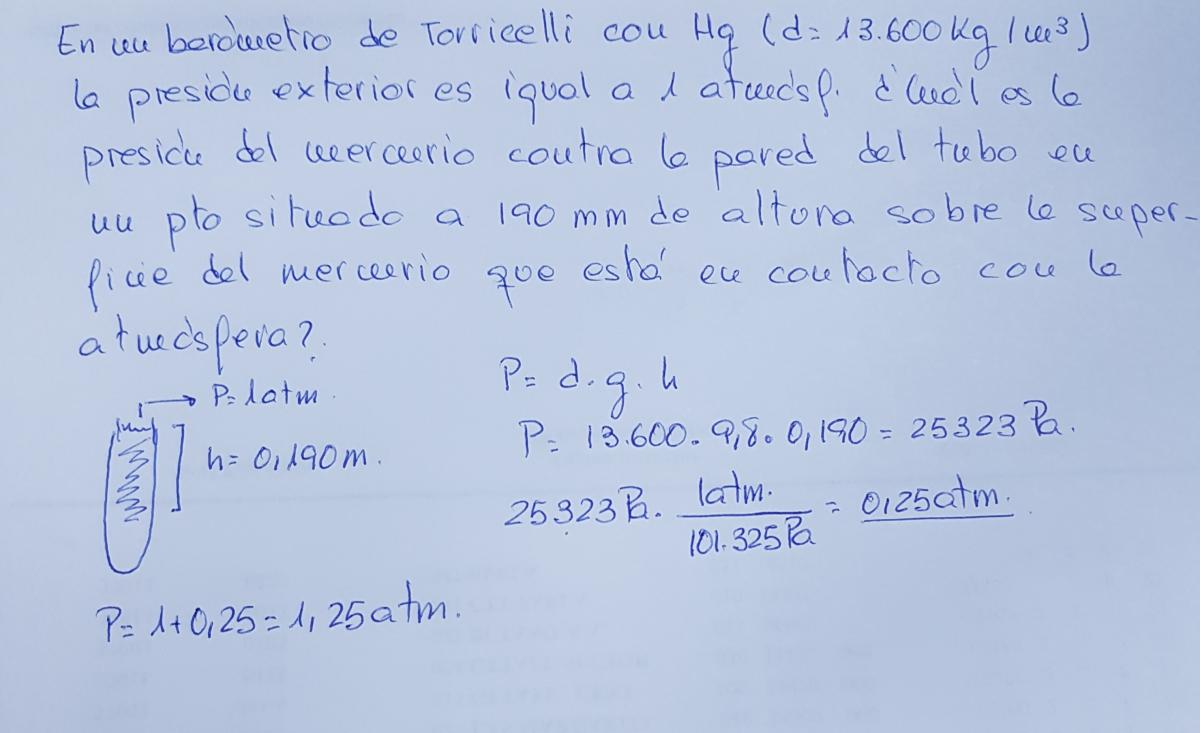 En un barómetro de Torricelli con Hg (d= 13.600 Kg/m³)
la presión exterior es igual a 1 atmósf. ¿Cuál es la
presión del mercurio contra la pared del tubo en
un pto situado a 190 mm de altura sobre la super-
ficie del mercurio que está en contacto con la
atmósfera?
P= 1atm.
h= 0,190m.
P= d.g.h
P= 13.600. 9,8. 0,190 = 25323 Pa.
25323 Pa. 1atm. / 101.325 Pa = 0,25 atm.
P= 1+0,25 = 1,25 atm.